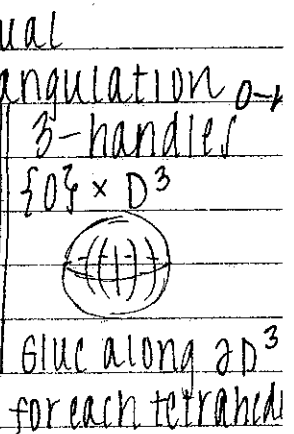 ual
angulation 0-h
3-handles
{0} × D³
Glue along ∂D³
for each tetrahed